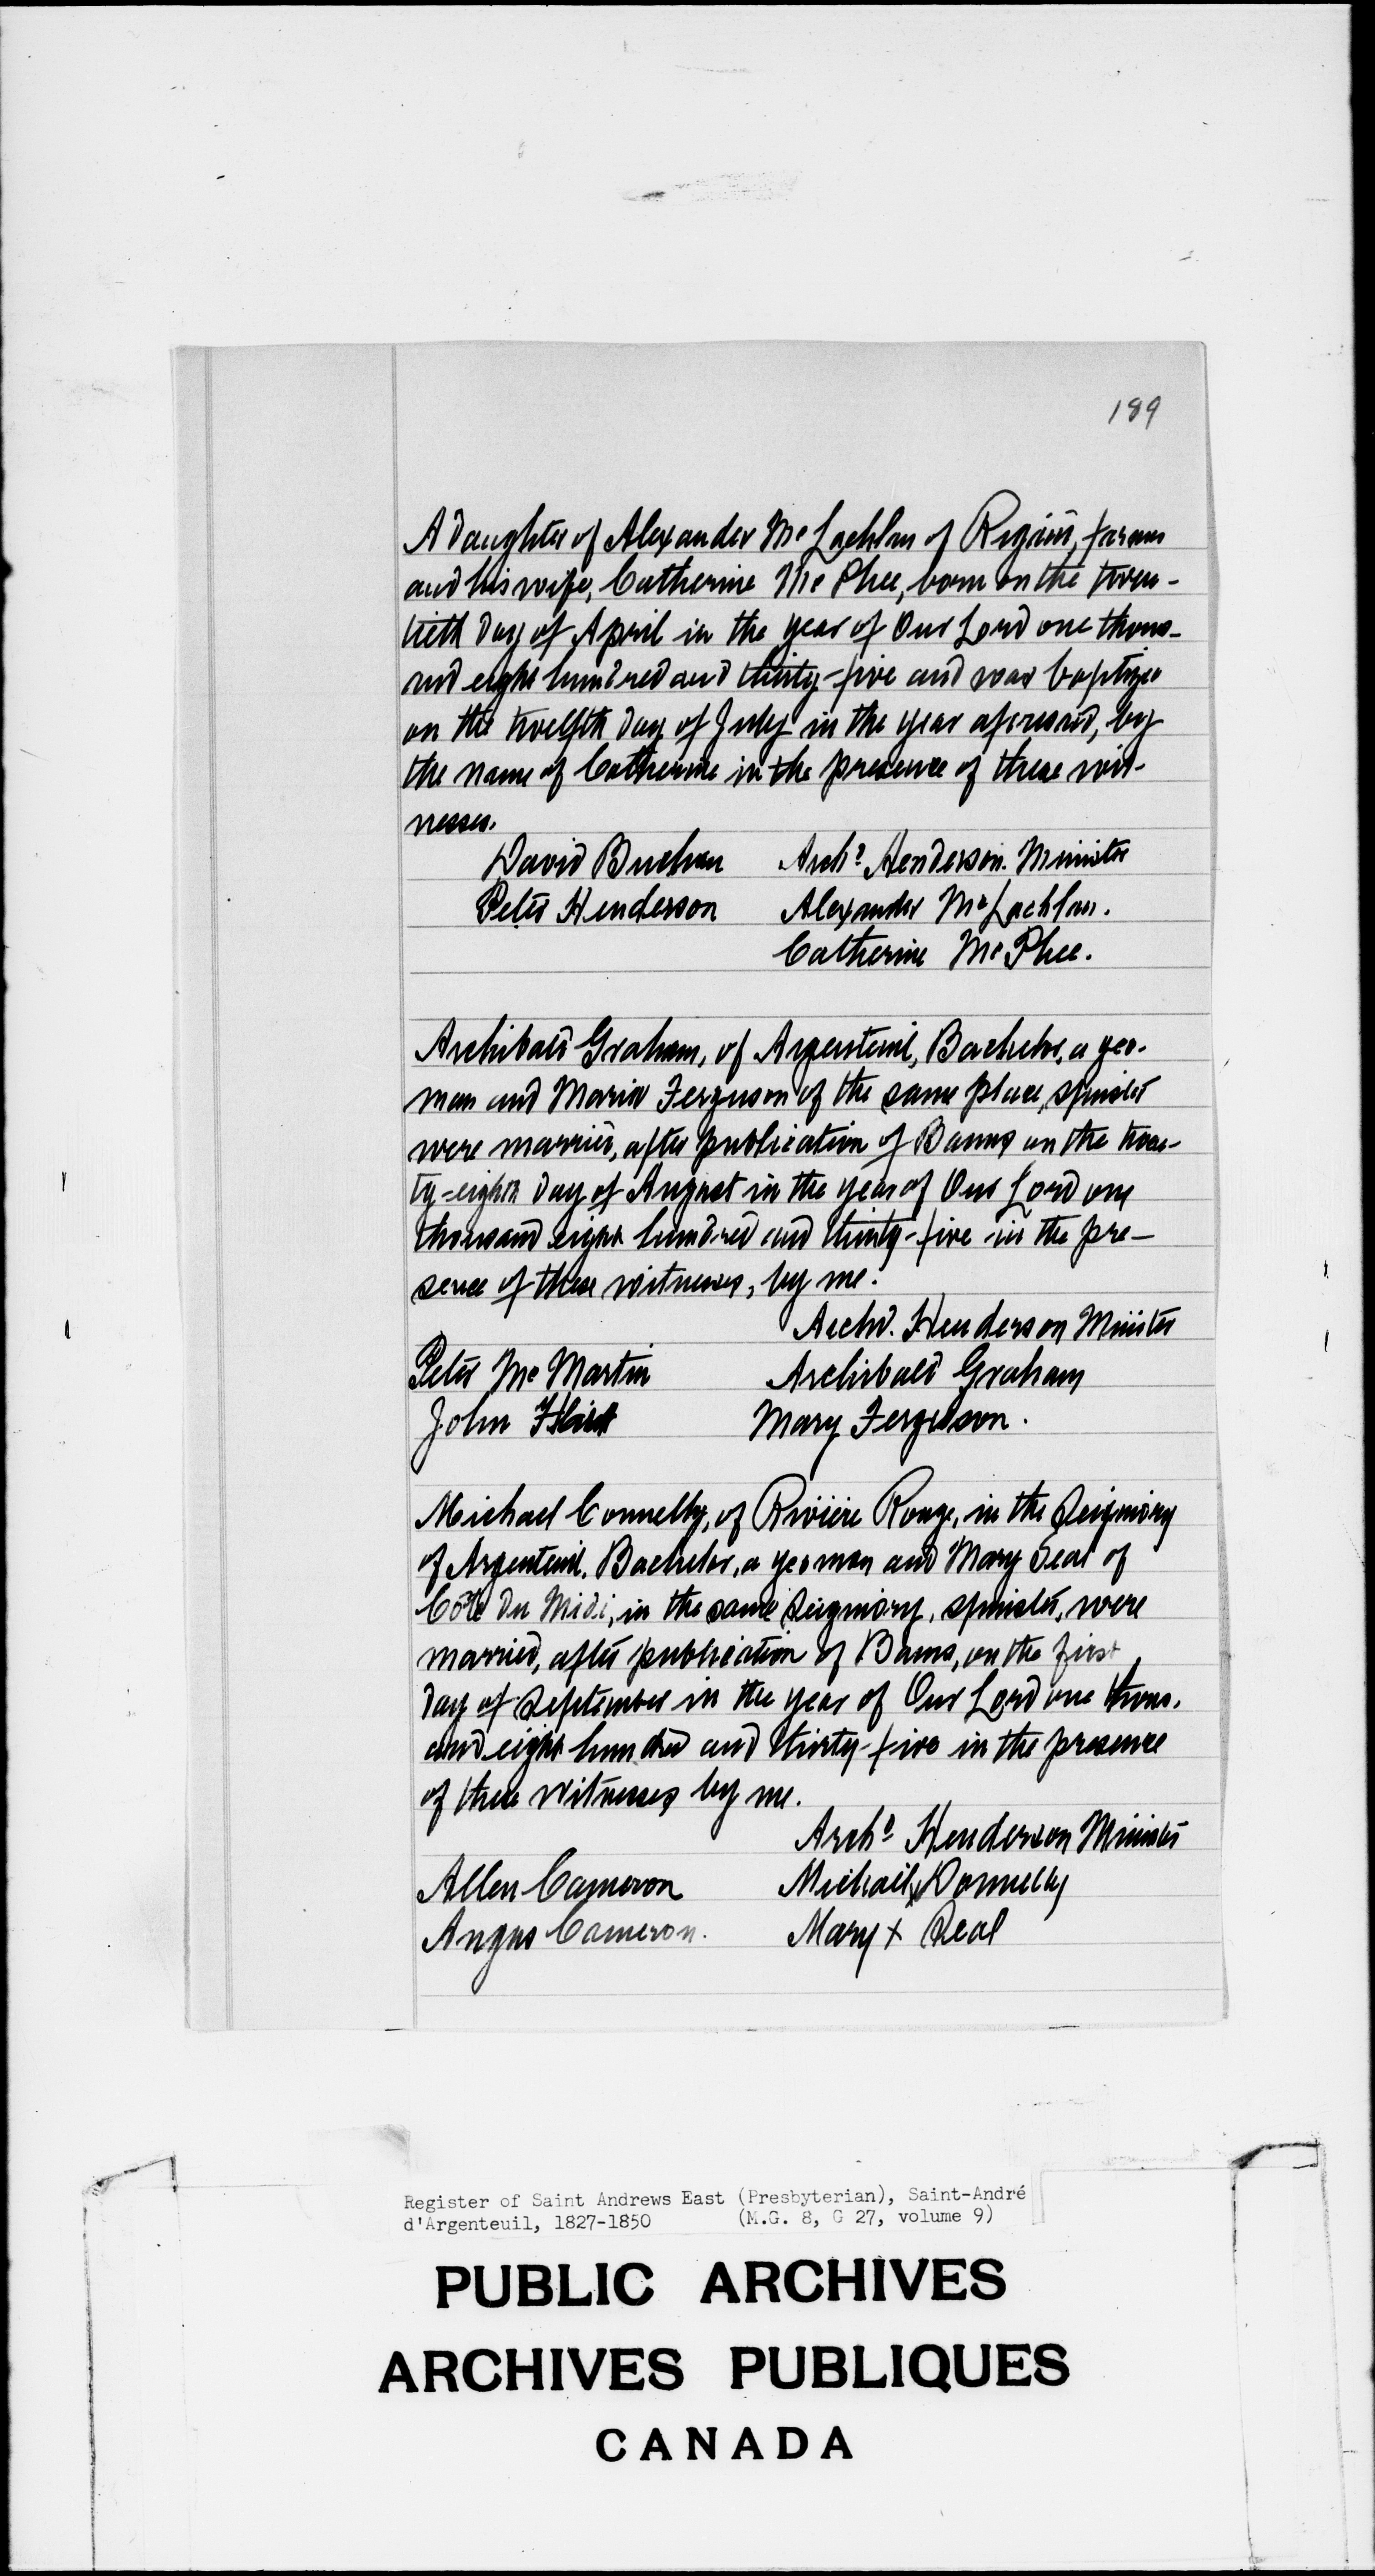 189
A daughter of Alexander Mc Lachlan of Rigaud, farmer
and his wife, Catherine Mc Phee, born on the twen-
tieth day of April in the year of Our Lord one thous-
and eight hundred and thirty-five and was baptized
on the twelfth day of July in the year aforesaid, by
the name of Catherine in the presence of these wit-
nesses.
David Buchan Archd Henderson. Minister
Peter Henderson Alexander Mc Lachlan.
Catherine Mc Phee.
Archibald Graham, of Argenteuil, Bachelor, a yeo-
man and Maria Ferguson of the same place, spinster
were married, after publication of Banns on the twen-
ty-eighth day of August in the year of Our Lord one
thousand eight hundred and thirty-five in the pre-
sence of these witnesses, by me.
Archd. Henderson Minister
Peter Mc Martin Archibald Graham
John Mary Ferguson.
Michael Connelly, of Rivière Rouge, in the Seigniory
of Argenteuil, Bachelor, a yeoman and Mary Seal of
Côte du Midi, in the same Seigniory, spinster, were
married, after publication of Banns, on the first
day of September in the year of Our Lord one thous-
and eight hundred and thirty-five in the presence
of these witnesses by me.
Archd Henderson Minister
Allen Cameron Michael x Donnelly
Angus Cameron. Mary x Seal
Register of Saint Andrews East (Presbyterian), Saint-André
d'Argenteuil, 1827-1850 (M.G. 8, G 27, volume 9)
PUBLIC ARCHIVES
ARCHIVES PUBLIQUES
CANADA